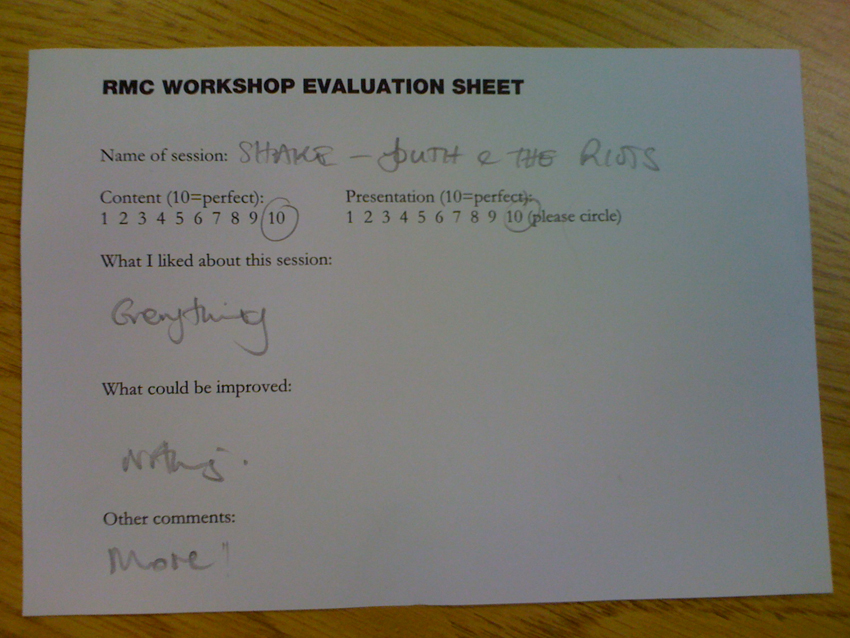 RMC WORKSHOP EVALUATION SHEET
Name of session: SHAKE - YOUTH & THE RIOTS
Content (10=perfect): Presentation (10=perfect):
1 2 3 4 5 6 7 8 9 10 1 2 3 4 5 6 7 8 9 10 (please circle)
What I liked about this session:
Everything
What could be improved:
Nothing.
Other comments:
More!!